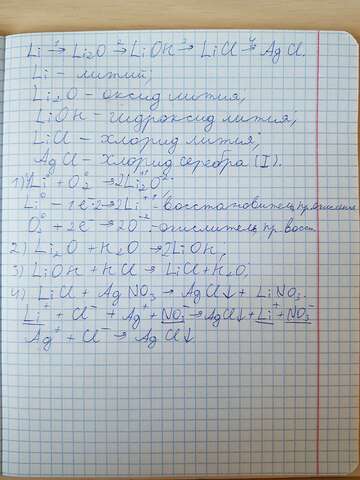 Li →¹ Li₂O →² LiOH →³ LiCl →⁴ AgCl.
Li – литий;
Li₂O – оксид лития;
LiOH – гидроксид лития;
LiCl – хлорид лития;
AgCl – хлорид серебра (I).
1) 4Li⁰ + O₂⁰ → 2Li₂⁺¹O⁻²
Li⁰ – 1e → Li⁺¹ – восстановитель, пр. окисления
O₂⁰ + 2e → 2O⁻² – окислитель, пр. восст.
2) Li₂O + H₂O → 2LiOH;
3) LiOH + HCl → LiCl + H₂O;
4) LiCl + AgNO₃ → AgCl↓ + LiNO₃.
Li⁺ + Cl⁻ + Ag⁺ + NO₃⁻ → AgCl↓ + Li⁺ + NO₃⁻
Ag⁺ + Cl⁻ → AgCl↓